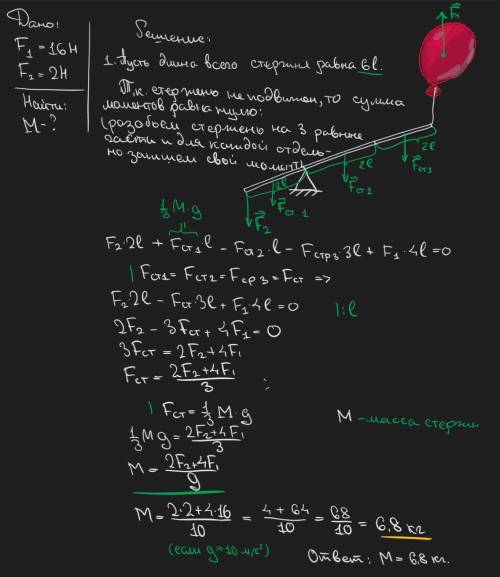 Дано:
F₁ = 16Н
F₂ = 2Н
Найти:
М - ?
Решение:
1. Пусть длина всего стержня равна 6l.
Т.к. стержень неподвижен, то сумма
моментов равна нулю:
(разобьем стержень на 3 равные
части и для каждой отдель-
но запишем свой момент)
F₁
2l
2l
2l
Fст3
Fст2
Fст.1
F₂
1/3 M·g
F₂·2l + Fст1·l - Fст2·l - Fстр3·3l + F₁·4l = 0
| Fст1 = Fст2 = Fстр3 = Fст =>
F₂·2l - Fст·3l + F₁·4l = 0 | :l
2F₂ - 3Fст + 4F₁ = 0
3Fст = 2F₂ + 4F₁
Fст = (2F₂ + 4F₁)/3
| Fст = 1/3 M·g
М - масса стержня
1/3 Mg = (2F₂ + 4F₁)/3
M = (2F₂ + 4F₁)/g
M = (2·2 + 4·16)/10 = (4 + 64)/10 = 68/10 = 6,8 кг
(если g ≈ 10 м/с²)
Ответ: М = 6,8 кг.